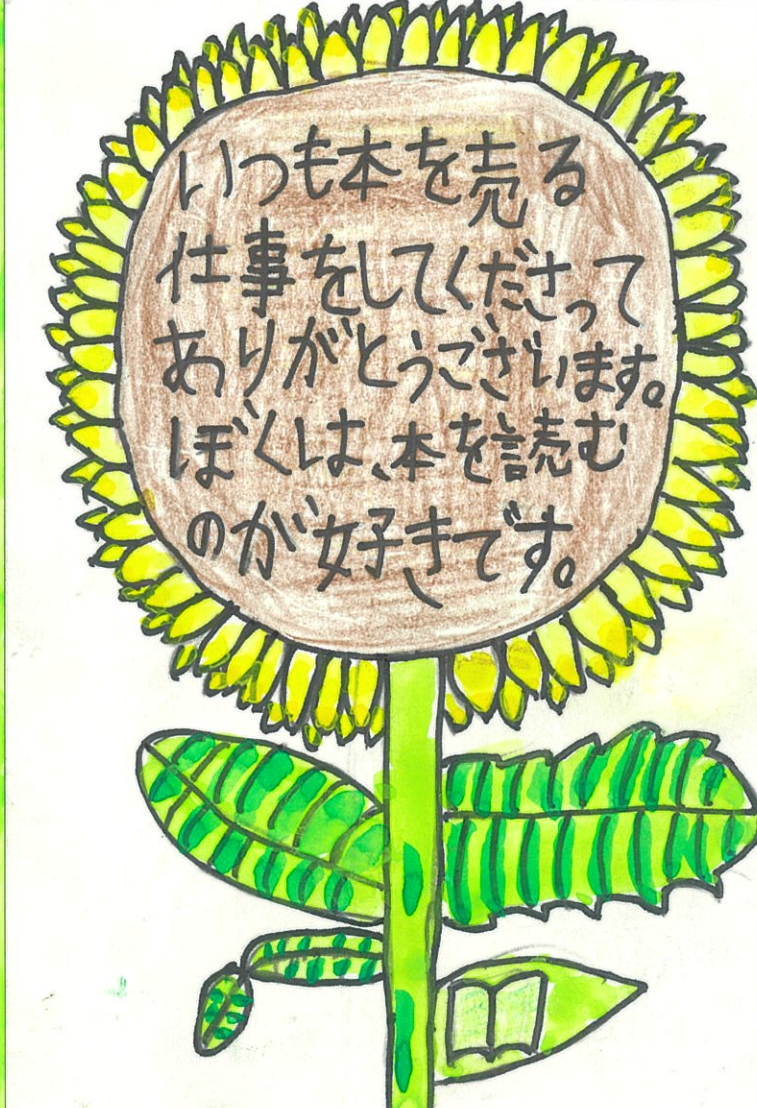 いつも本を売る
仕事をしてくださって
ありがとうございます。
ぼくは、本を読む
のが好きです。